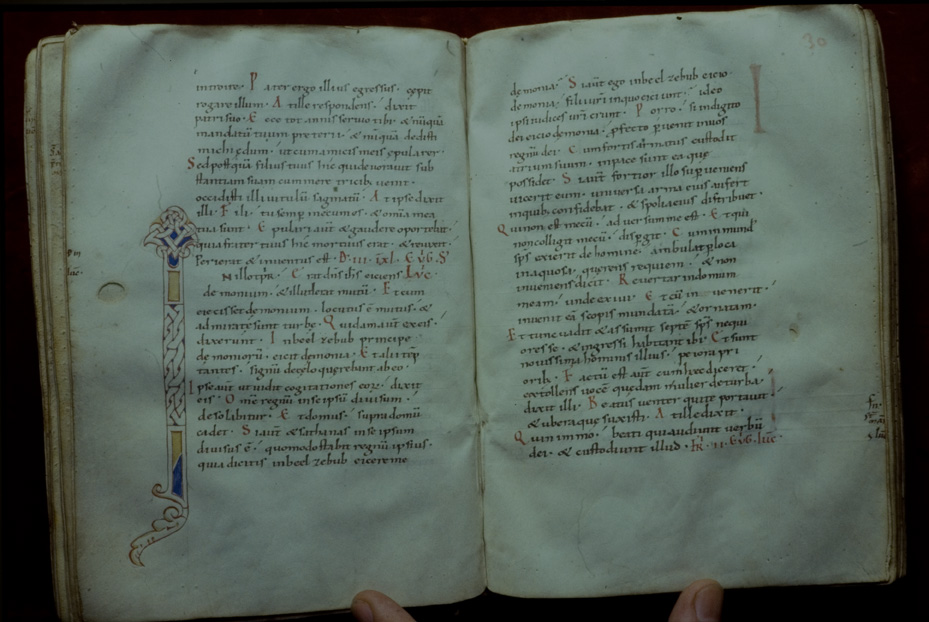 introire · Pater ergo illius egressus · cepit
rogare illum · At ille respondens · dixit
patri suo · Ecce tot annis servo tibi · & nūquā
mandatū tuum preterii · & nūquā dedisti
mihi hedum · ut cum amicis meis epularer ·
Sed postquā filius tuus hic qui devoravit sub
stantiam suam cum meretricib; venit ·
occidisti illi vitulū saginatū · At ipse dixit
illi · Fili · tu semp mecum es · & omīa mea
tua sunt · Epulari aut & gaudere oportebit ·
quia frater tuus hic mortuus erat · & revixit ·
Perierat & inventus est · D · III · ī xl · Evḡ · S
In illo tp̄r · Erat dn̄s ih̄s eiciens Luc̄
demonium · & illud erat mutū · Et cum
eiecisset demonium · locutus ē mutus · &
admirate sunt turbe · Quidam aut ex eis ·
dixerunt · In beelzebub principe
demoniorū · eicit demonia · Et alii tēp
tantes · signū de celo querebant ab eo ·
Ipse aut ut vidit cogitationes eor; · dixit
eis · Om̄e regnū in se ipsū divisum ·
desolabitur · Et domus · supra domū
cadet · Si aut & sathanas in se ipsum
divisus ē · quomodo stabit regnū ipsius ·
quia dicitis in beelzebub eicere me
30
demonia · Si aut ego in beelzebub eicio
demonia · filii vr̄i in quo eiciunt · ideo
ipsi iudices vr̄i erunt · Porro · si in digito
dei eicio demonia · pfecto pvenit in vos
regnū dei · Cum fortis armatus custodit
atrium suum · in pace sunt ea que
possidet · Si aut fortior illo supveniens
vicerit eum · universa arma eius aufert
in quib; confidebat · & spolia eius distribuet ·
Qui non est mecū · adversum me est · Et qui
non colligit mecū · dispgit · Cum inmund
sps exierit de homine · ambulat p loca
inaquosa · querens requiem · & non
inveniens dicit · Revertar in domum
meam · unde exivi · Et cū venerit ·
invenit eā scopis mundatā · & ornatam ·
Et tunc vadit & assumit septē sps nequi
ores se · & ingressi habitant ibi · Et sunt
novissima hominis illius · peiora pri
orib; · Factū est aut cum hec diceret ·
extollens vocē quedam mulier de turba ·
dixit illi · Beatus venter qui te portavit ·
& ubera que suxisti · At ille dixit ·
Quin immo · beati qui audiunt verbū
dei · & custodiunt illud · Fr̄ · II · Evḡ · Luc̄ ·